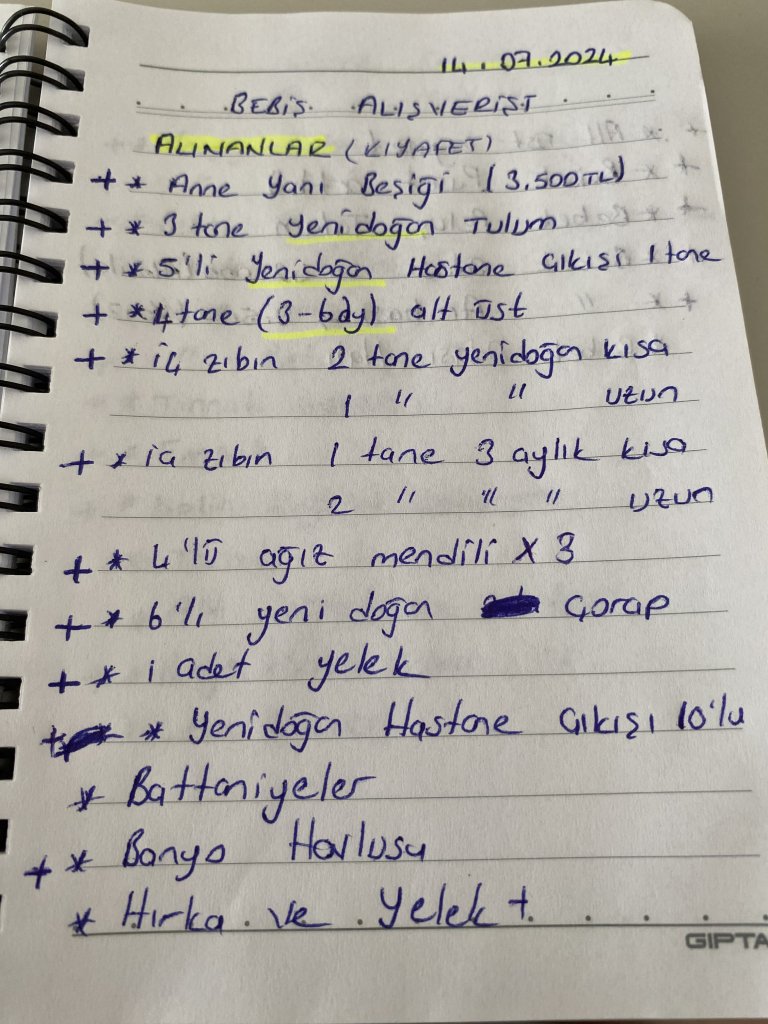 14.07.2024
BEBİŞ ALIŞVERİŞİ
ALINANLAR (KIYAFET)
+ * Anne Yanı Beşiği (3.500TL)
+ * 3 tane yenidoğan Tulum
+ * 5'li Yenidoğan Hastane çıkışı 1 tane
+ * 4 tane (3-6ay) alt üst
+ * iç zıbın 2 tane yenidoğan kısa
1 " " uzun
+ * iç zıbın 1 tane 3 aylık kısa
2 " " " uzun
+ * 4'lü ağız mendili X 3
+ * 6'lı yeni doğan çorap
+ * 1 adet yelek
+ * Yenidoğan Hastane çıkışı 10'lu
* Battaniyeler
+ * Banyo Havlusu
* Hırka ve Yelek +
GIPTA